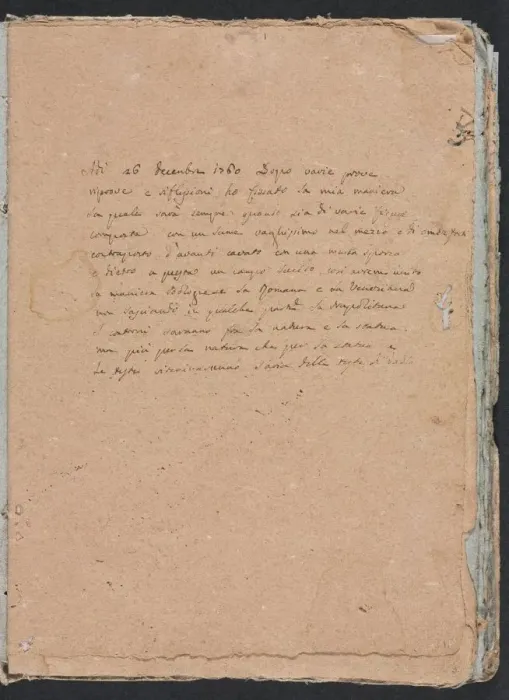 Adi 26 Decembre 1760 Dopo varie prove
riprove e riflessioni ho fissato la mia maniera
la quale sarà sempre quando sia di varie figure
composta con un lume vaghissimo nel mezzo e di
contraposto d'avanti cavato con una mezza
e dietro a questa un campo lucido, così averem unito
la maniera Bolognese la Romana e la Veneziana
non lasciando in qualche parte la Napolitana
I contorni saranno fra la natura e la statua
ma più per la natura che per la statua e
le teste l'aria delle teste di